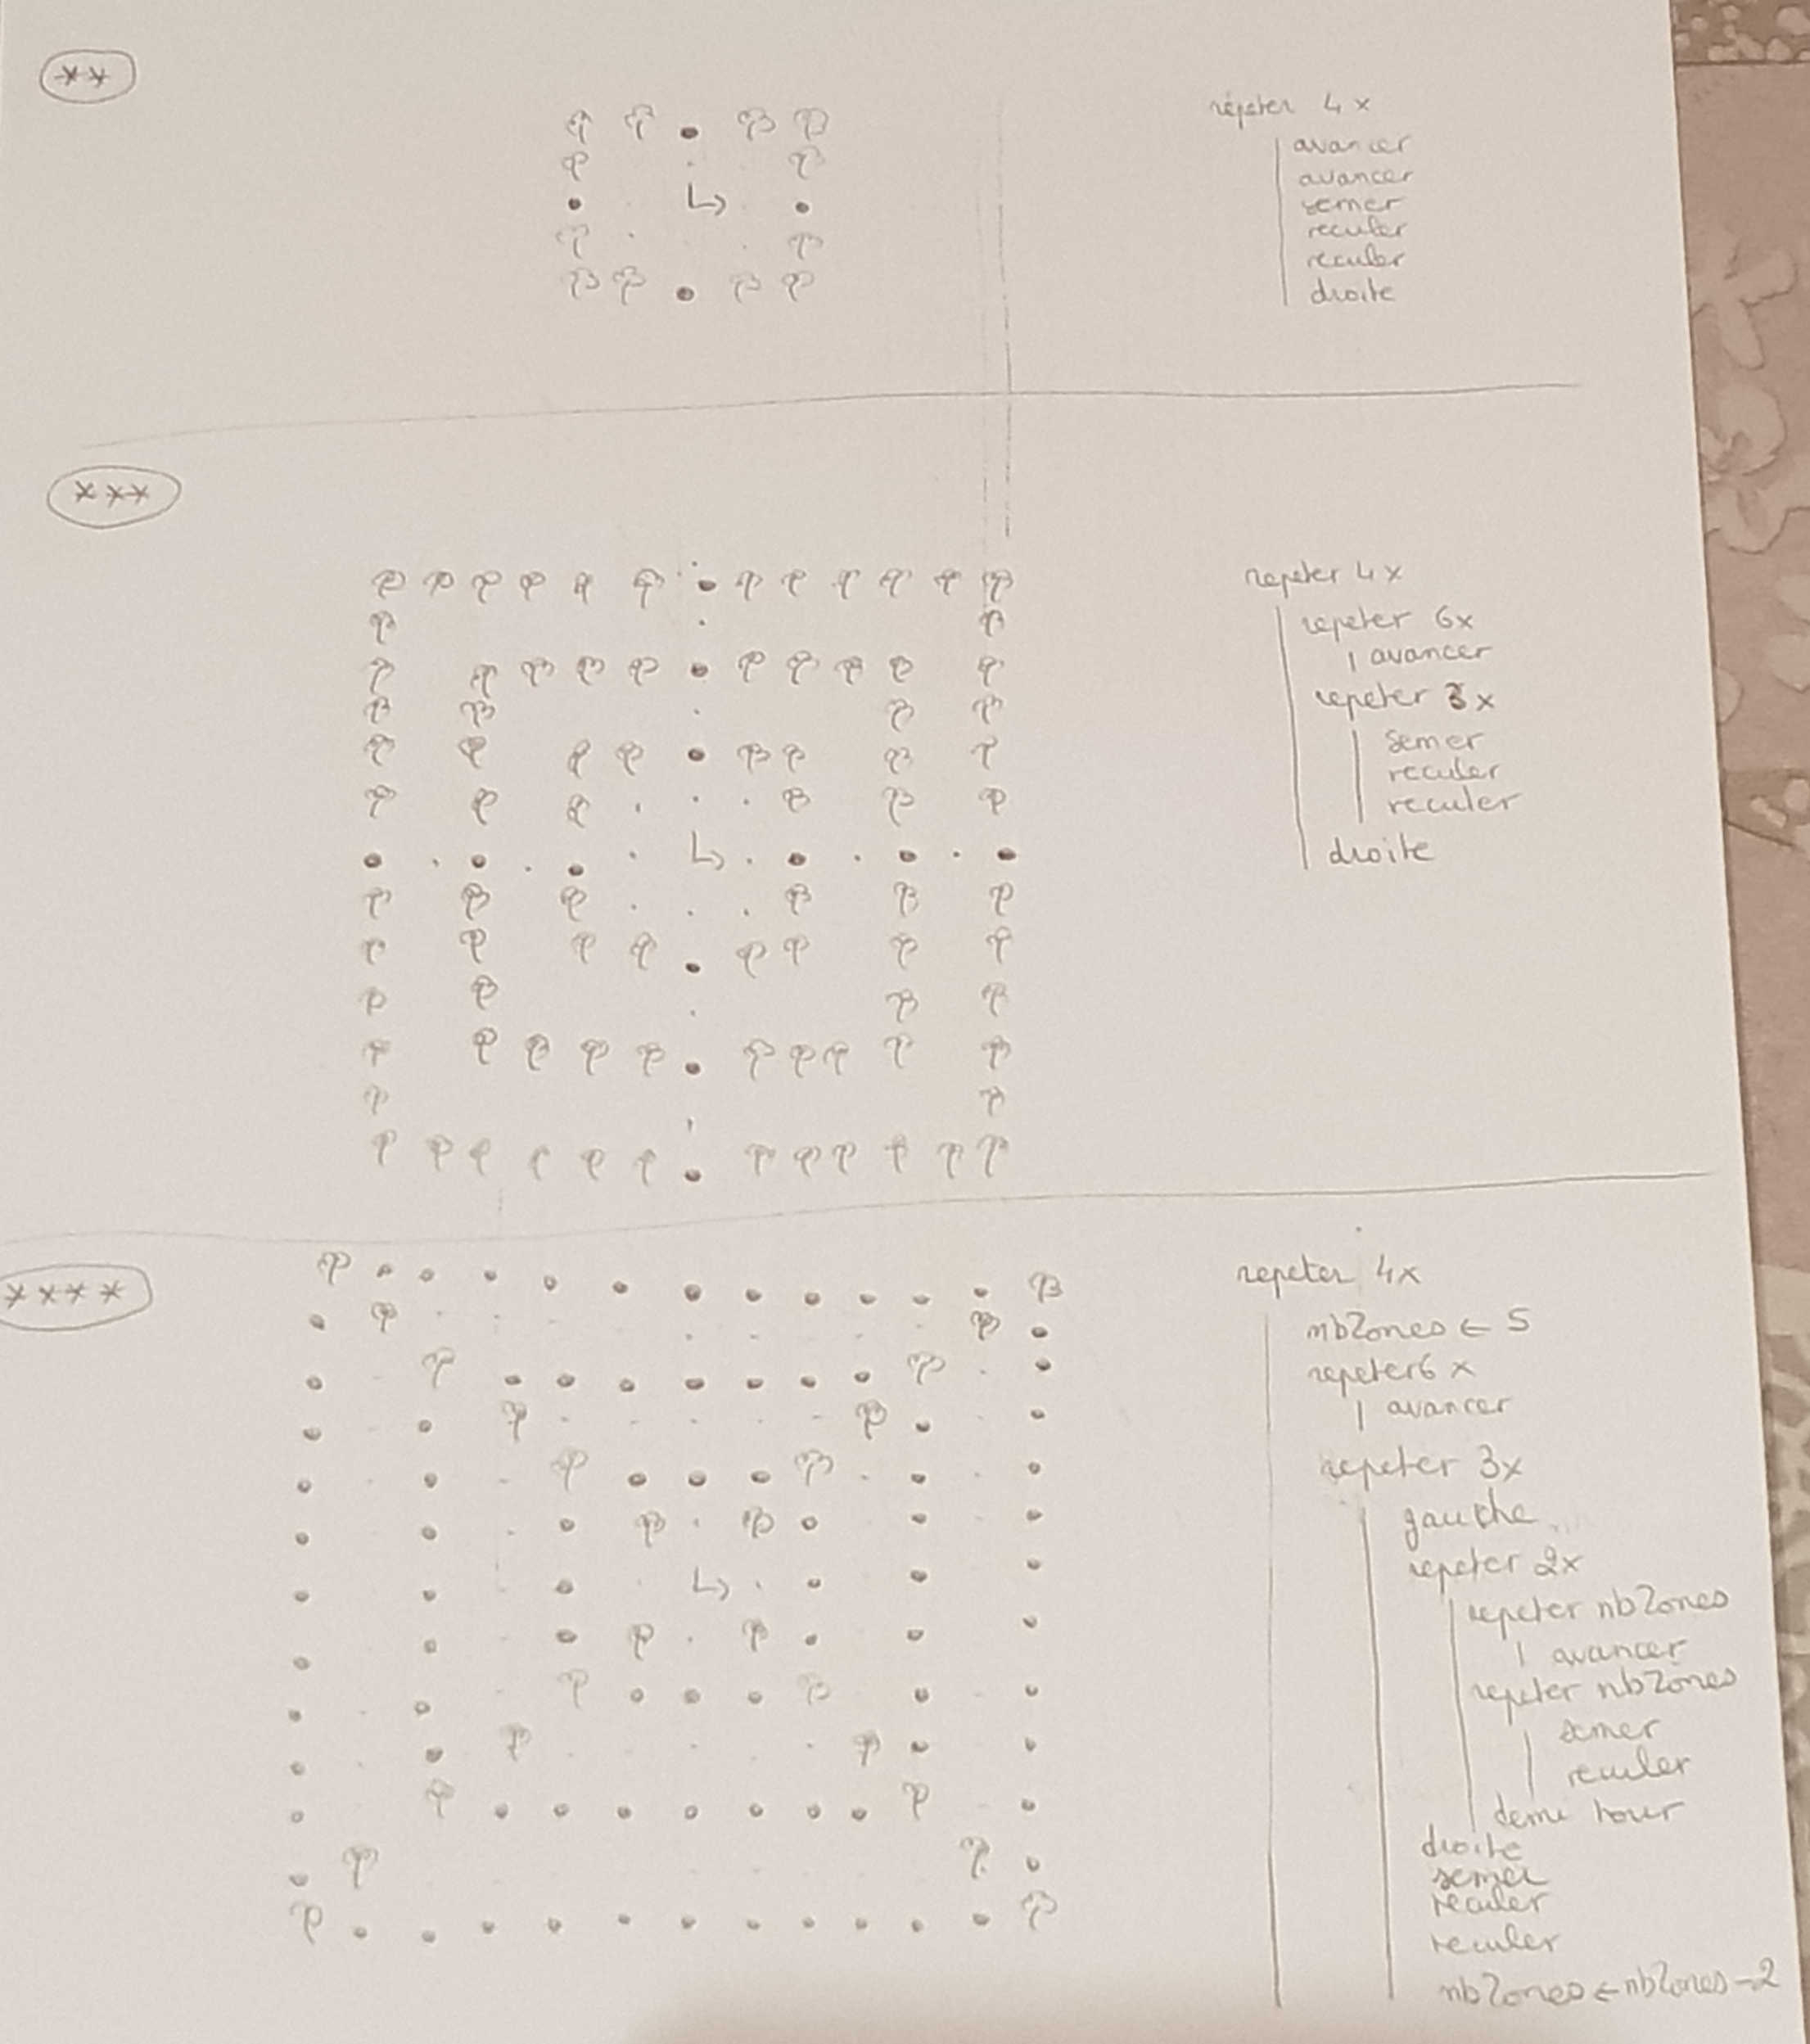 **
répéter 4x
avancer
avancer
semer
reculer
reculer
droite
***
repeter 4x
repeter 6x
avancer
repeter 3x
semer
reculer
reculer
droite
****
repeter 4x
nbZones ← 5
repeter 6x
avancer
repeter 3x
gauche
repeter 2x
repeter nbZones
avancer
repeter nbZones
semer
reculer
demi tour
droite
semer
reculer
reculer
nbZones ← nbZones - 2